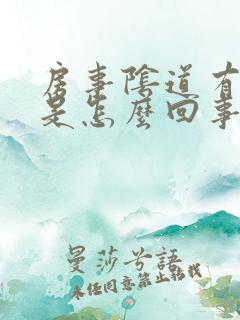 房事陰道有
是怎麼回事
曼莎兮語
未经同意禁止转载